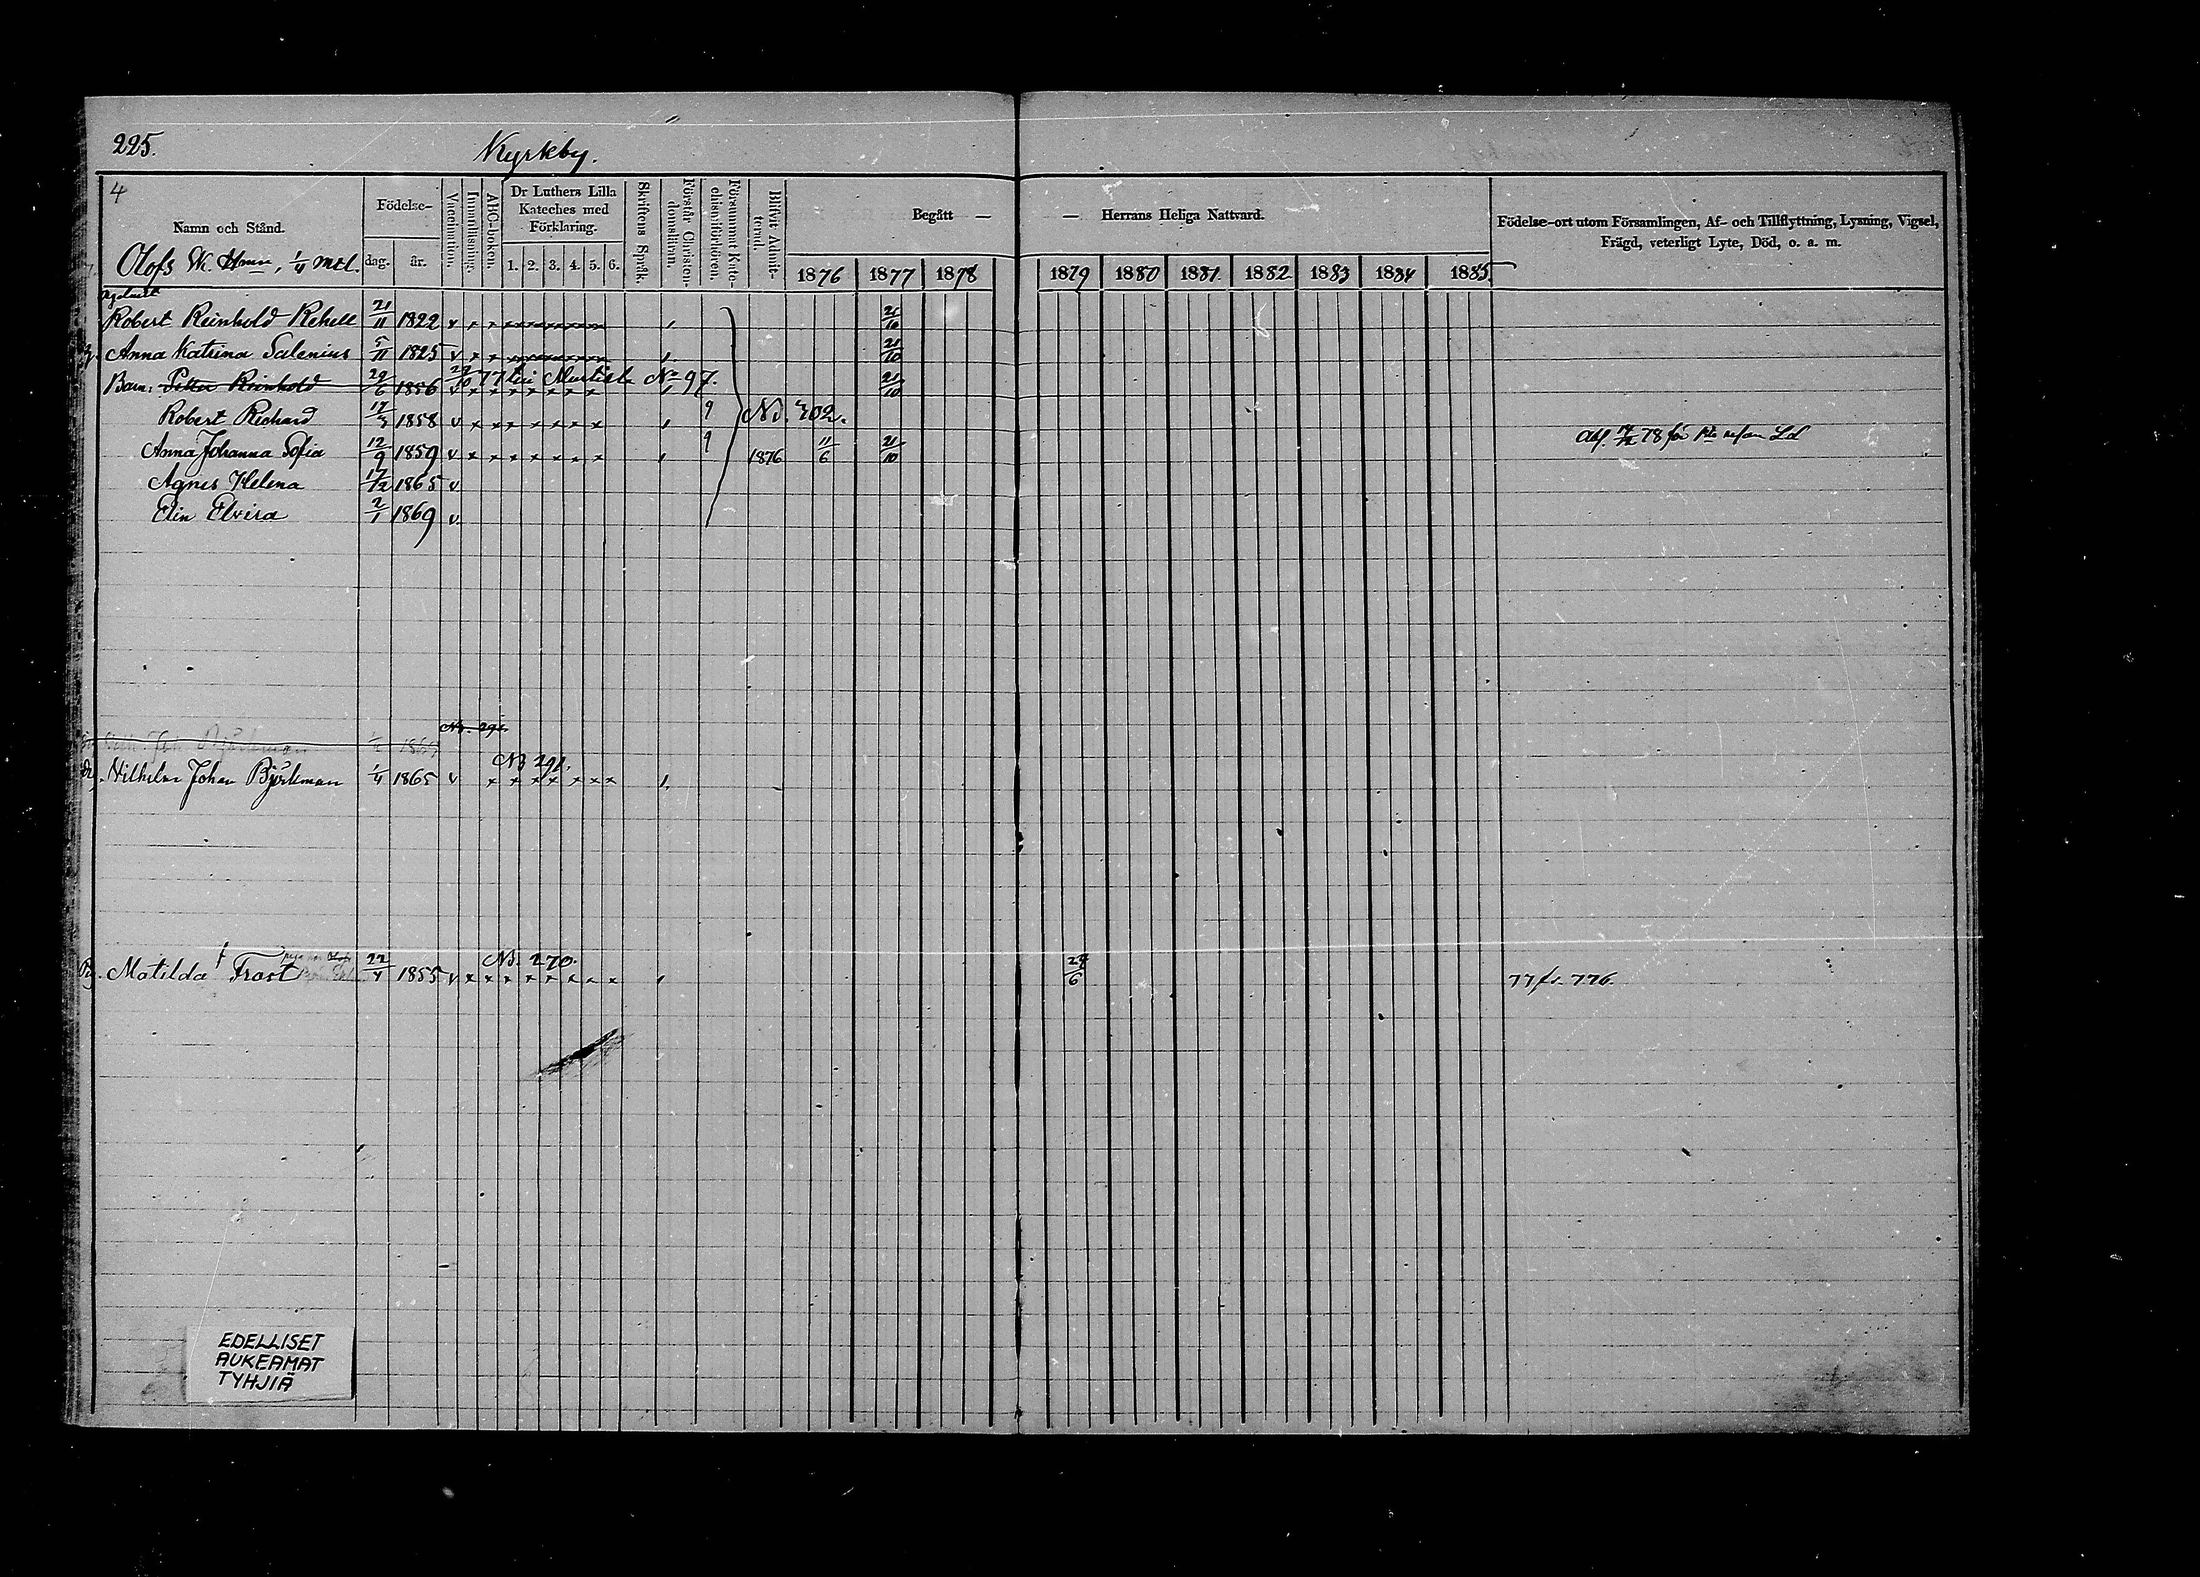 225.
Kyrkby.
4
Namn och Stånd.
Födelse-
dag. år.
Vaccination.
Innanläsning.
ABC-boken.
Dr Luthers Lilla Kateches med Förklaring.
1. 2. 3. 4. 5. 6.
Skriftens Språk.
Förstår Christendomsläran.
Försummat Katechismiförhören.
Blifvit Admitterad.
Begått —
— Herrans Heliga Nattvard.
1876 1877 1878 1879 1880 1881 1882 1883 1884 1885
Födelse-ort utom Församlingen, Af- och Tillflyttning, Lysning, Vigsel,
Frägd, veterligt Lyte, Död, o. a. m.
Olofs 1/4 mtl.
Robert Reinhold Rehell 21/11 1822 v 21/10
Anna Katrina Salenius 5/11 1825 v 21/10
Barn: Petter Reinhold 29/6 1856 77 No 97. 21/10
Robert Richard 17/3 1858 v N. 402.
Anna Johanna Sofia 12/9 1859 v 1876 11/6 21/10 78 för
Agnes Helena 17/12 1865 v
Elin Elvira 2/1 1869 v
No. 291.
Björkman
N 291.
Wilhelm Johan Björkman 1/4 1865 v
N. 270.
Matilda Frost 22/4 1855 v 29/6 77 fr. 776.
EDELLISET
AUKEAMAT
TYHJIÄ